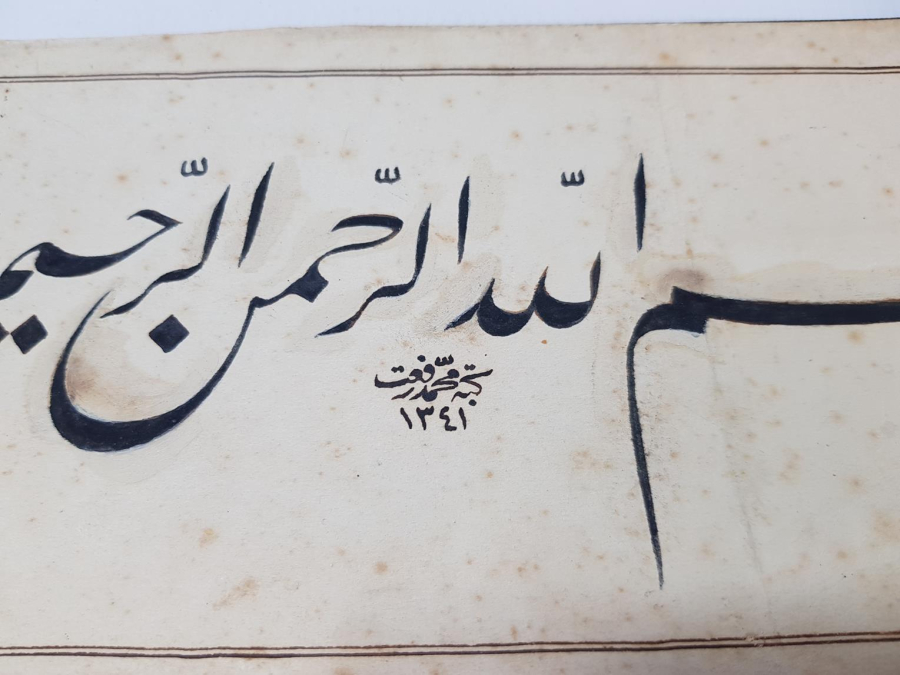 بسم اللّه الرّحمن الرّحيم
كتبه محمّد رفعت
١٣٤١